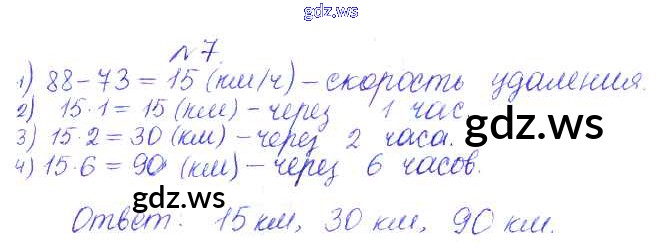 gdz.ws
№7.
1) 88-73=15 (км/ч) - скорость удаления.
2) 15·1=15 (км) - через 1 час
3) 15·2=30 (км) - через 2 часа.
4) 15·6=90 (км) - через 6 часов.
gdz.ws
gdz.ws
Ответ: 15 км, 30 км, 90 км.
gdz.ws